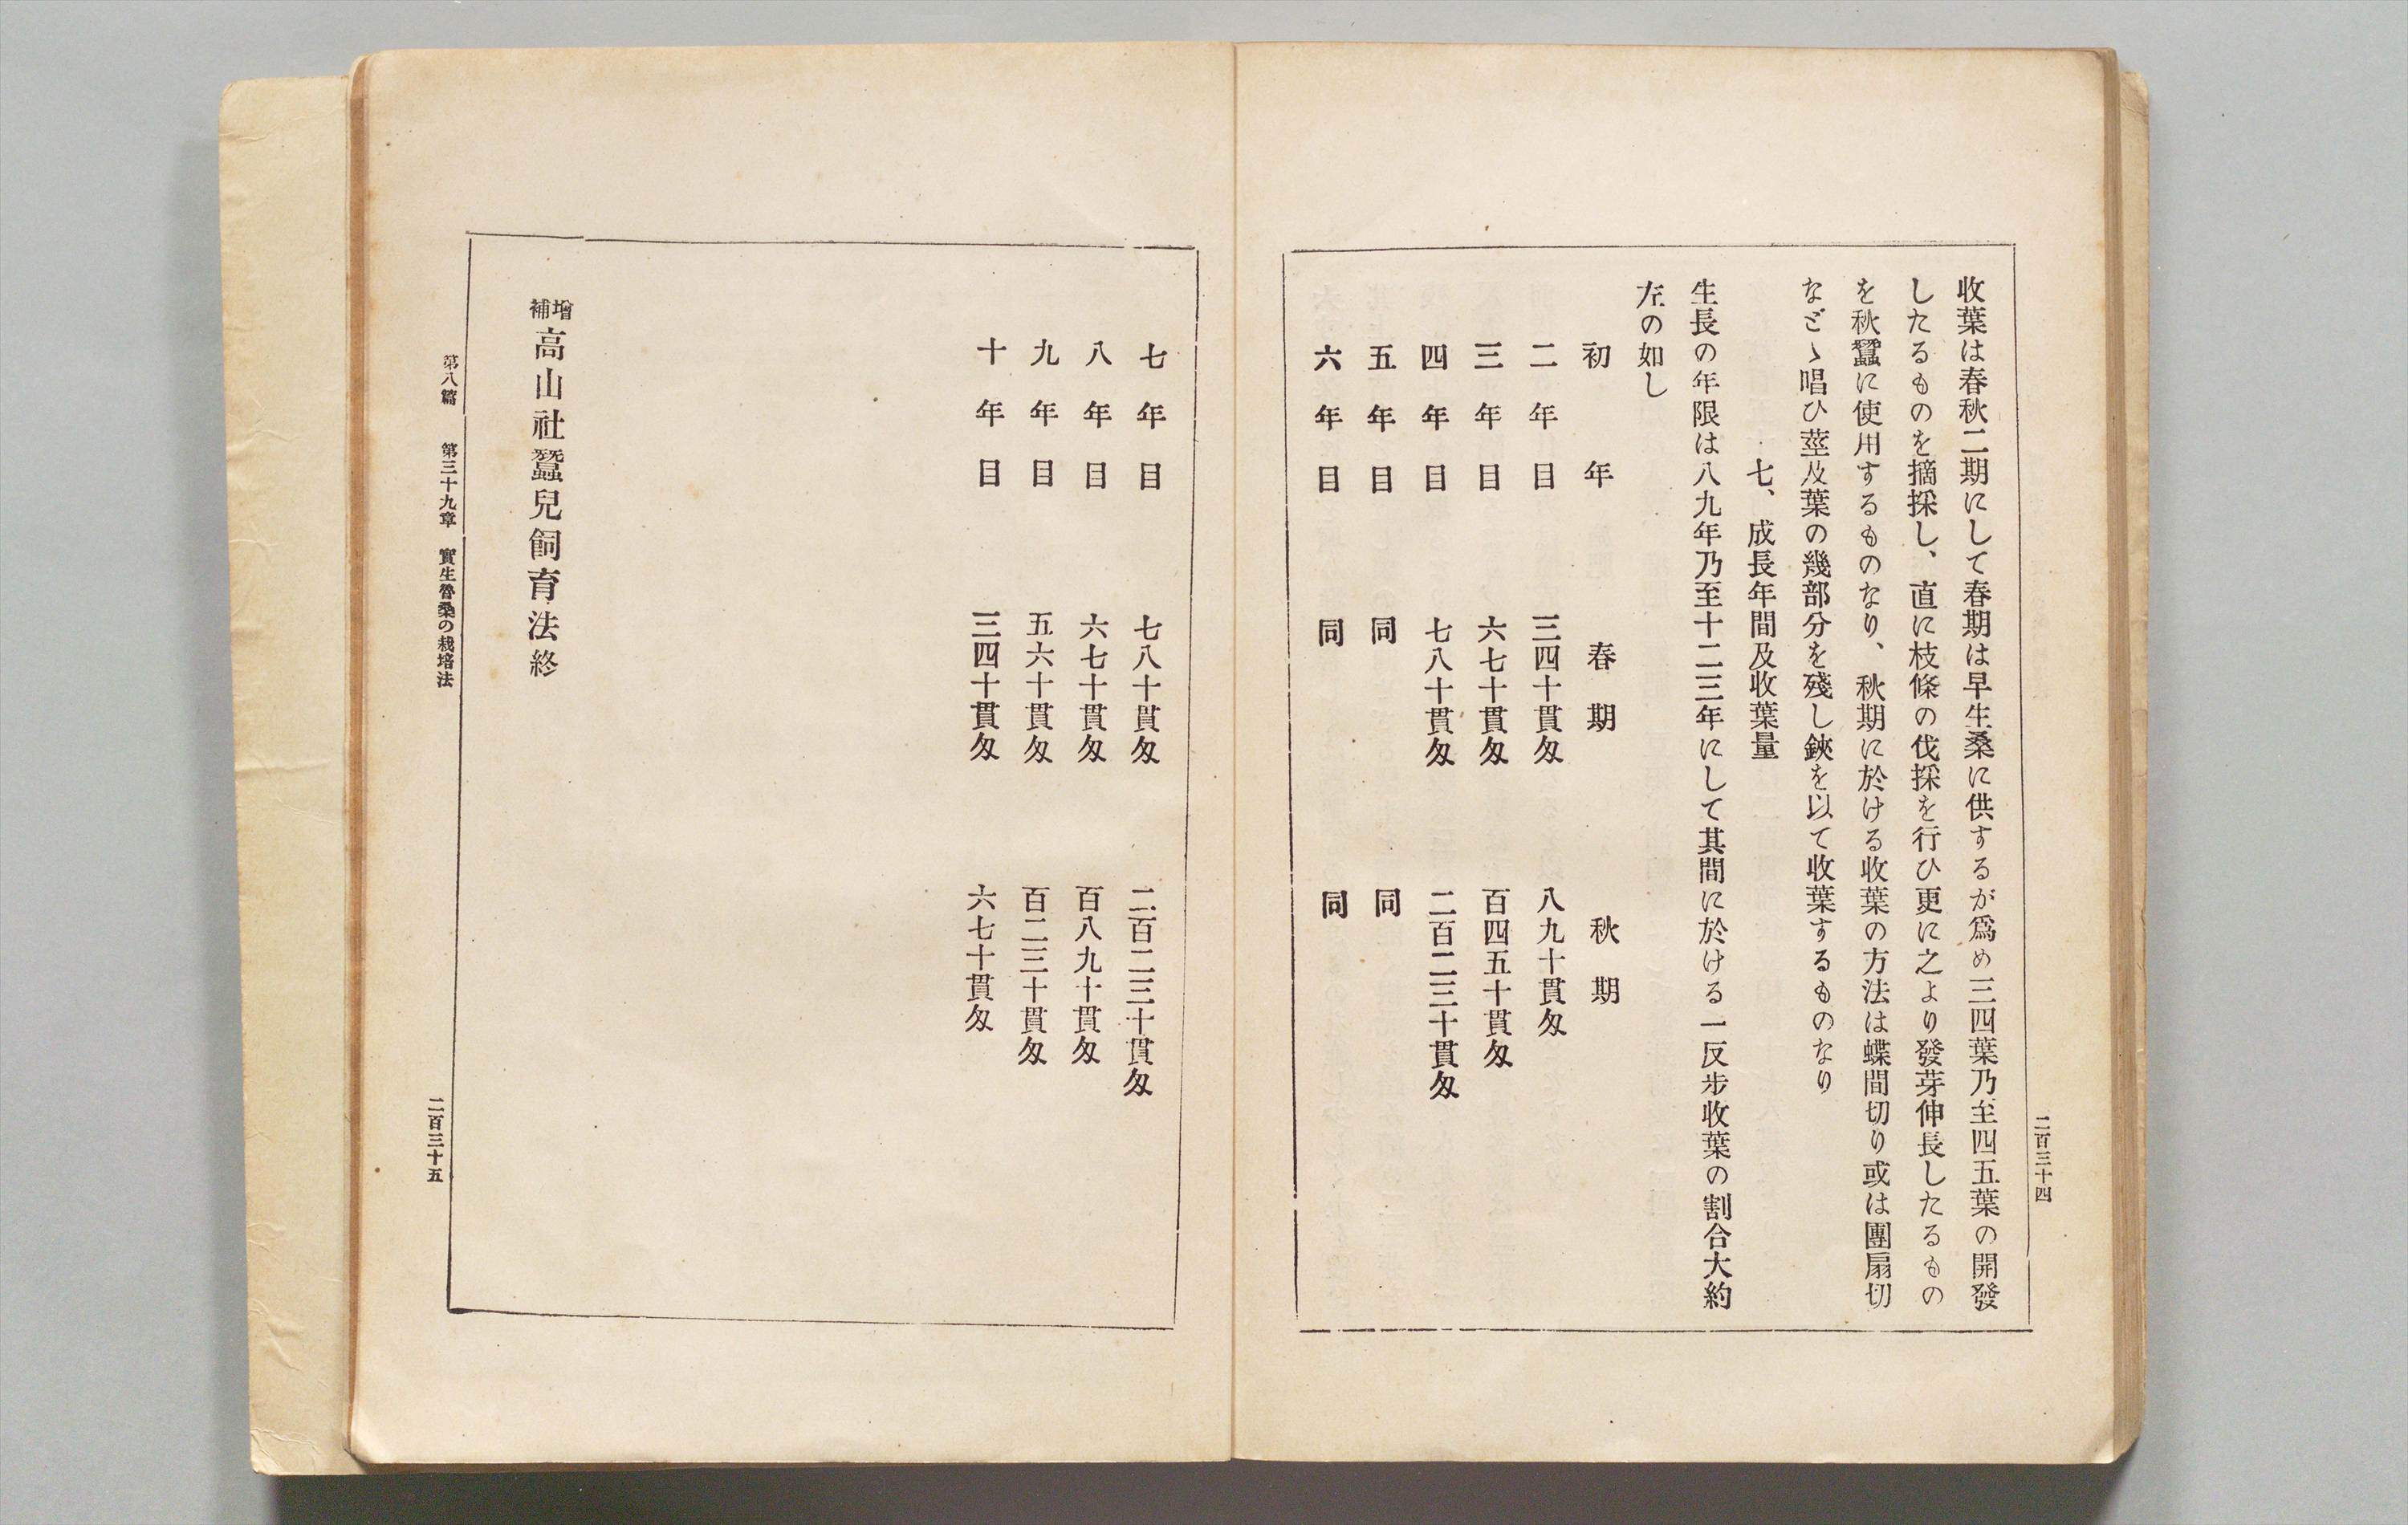 二百三十四
收葉は春秋二期にして春期は早生桑に供するが爲め三四葉乃至四五葉の開發
したるものを摘採し、直に枝條の伐採を行ひ更に之より發芽伸長したるもの
を秋蠶に使用するものなり、秋期に於ける收葉の方法は蝶間切り或は團扇切
などゝ唱ひ莖及葉の幾部分を殘し鋏を以て收葉するものなり
七、成長年間及收葉量
生長の年限は八九年乃至十二三年にして其間に於ける一反步收葉の割合大約
左の如し
初年 春期 秋期
二年目 三四十貫匁 八九十貫匁
三年目 六七十貫匁 百四五十貫匁
四年目 七八十貫匁 二百二三十貫匁
五年目 同 同
六年目 同 同
七年目 七八十貫匁 二百二三十貫匁
八年目 六七十貫匁 百八九十貫匁
九年目 五六十貫匁 百二三十貫匁
十年目 三四十貫匁 六七十貫匁
增補高山社蠶兒飼育法終
第八篇 第三十九章 實生魯桑の栽培法 二百三十五